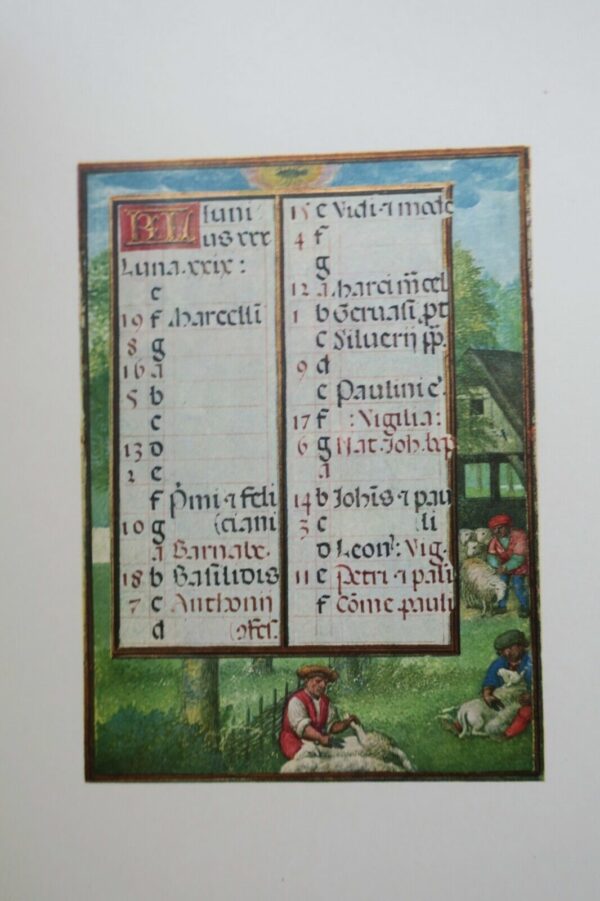 KL Iuni
us xxx
Luna.xxix:
e
19 f Marcelli
8 g
16 a
5 b
c
13 d
2 e
f P̄mi ⁊ feli
10 g (ciani
a Barnabe.
18 b Basilidis
7 c Anthonij
d (ↄfes.
15 e Viti ⁊ mode
4 f
g
12 a Marci m̄cel
1 b Geruasij ꝓt
c Siluerij pp.
9 d
e Paulini e.
17 f :Vigilia:
6 g Nat. Joh. bap
a
14 b Johīs ⁊ pau
3 c (li
d Leon: Vig.
11 e Petri ⁊ pauli
f Cōme pauli